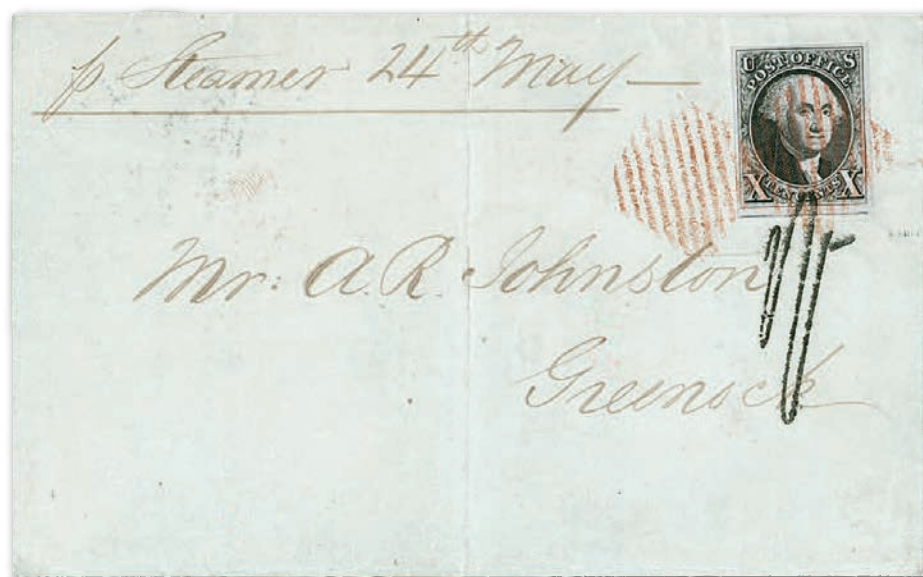 p Steamer 24th May
U S
POST OFFICE
X TEN CENTS X
Mr. A. R. Johnston
Greenock